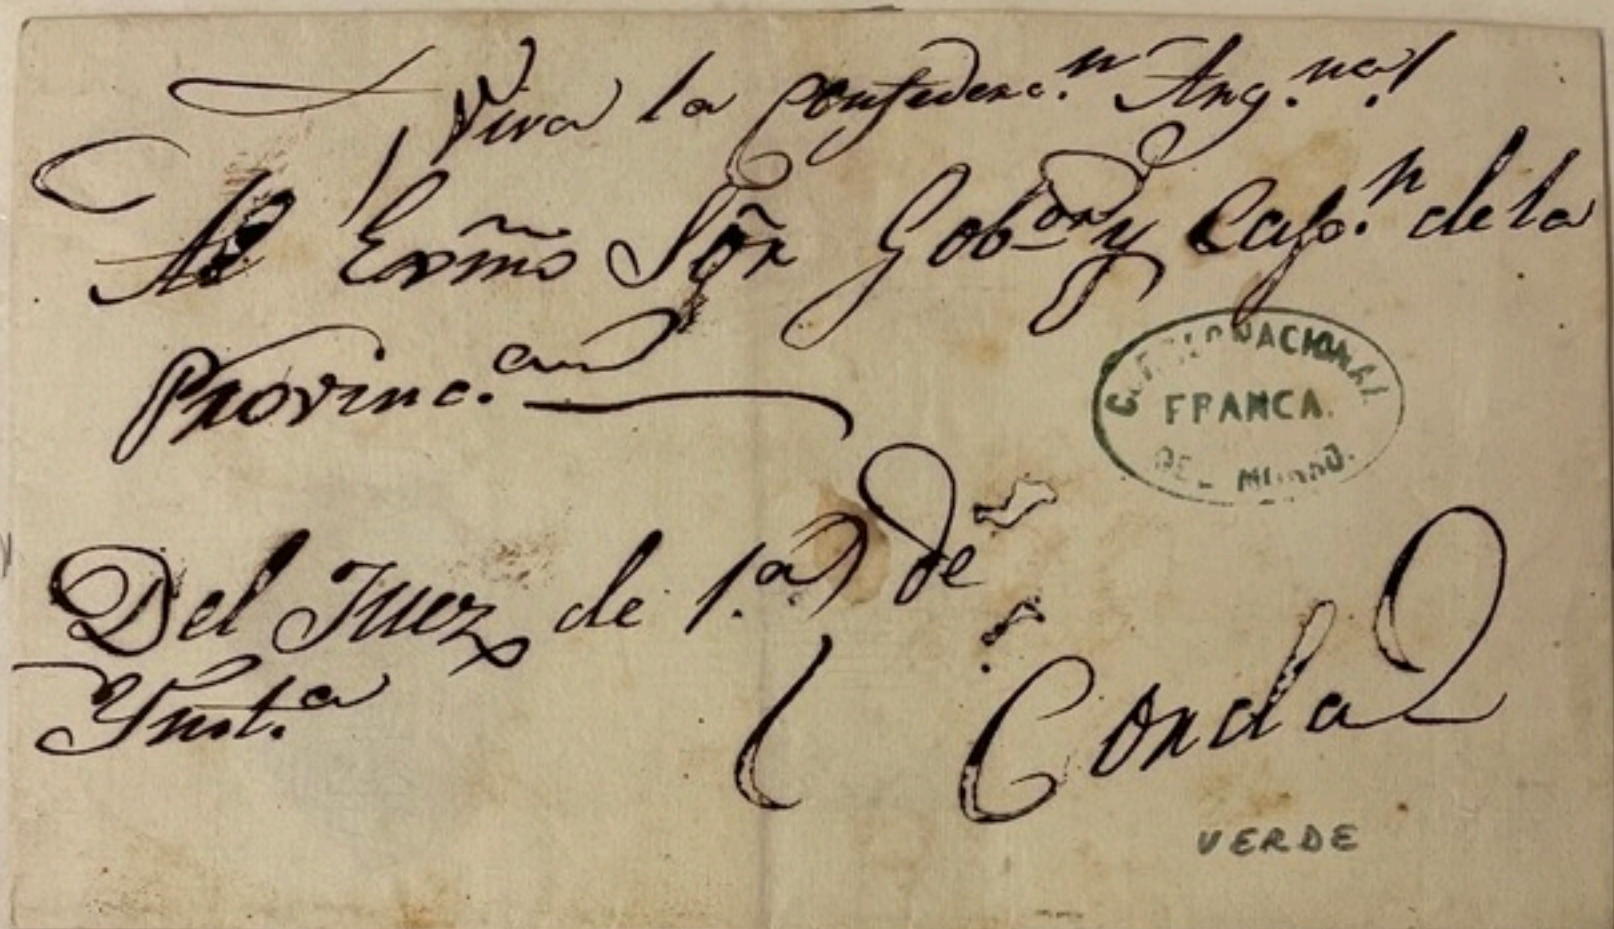 ¡Viva la Confederac.n Arg.na!
Al Exm̃o Sõr Gob.or y Cap.n de la
Provinc.a
CORREO NACIONAL
FRANCA.
DEL MORRO.
Del Juez de 1.a
Ynst.a
de
Corda
VERDE